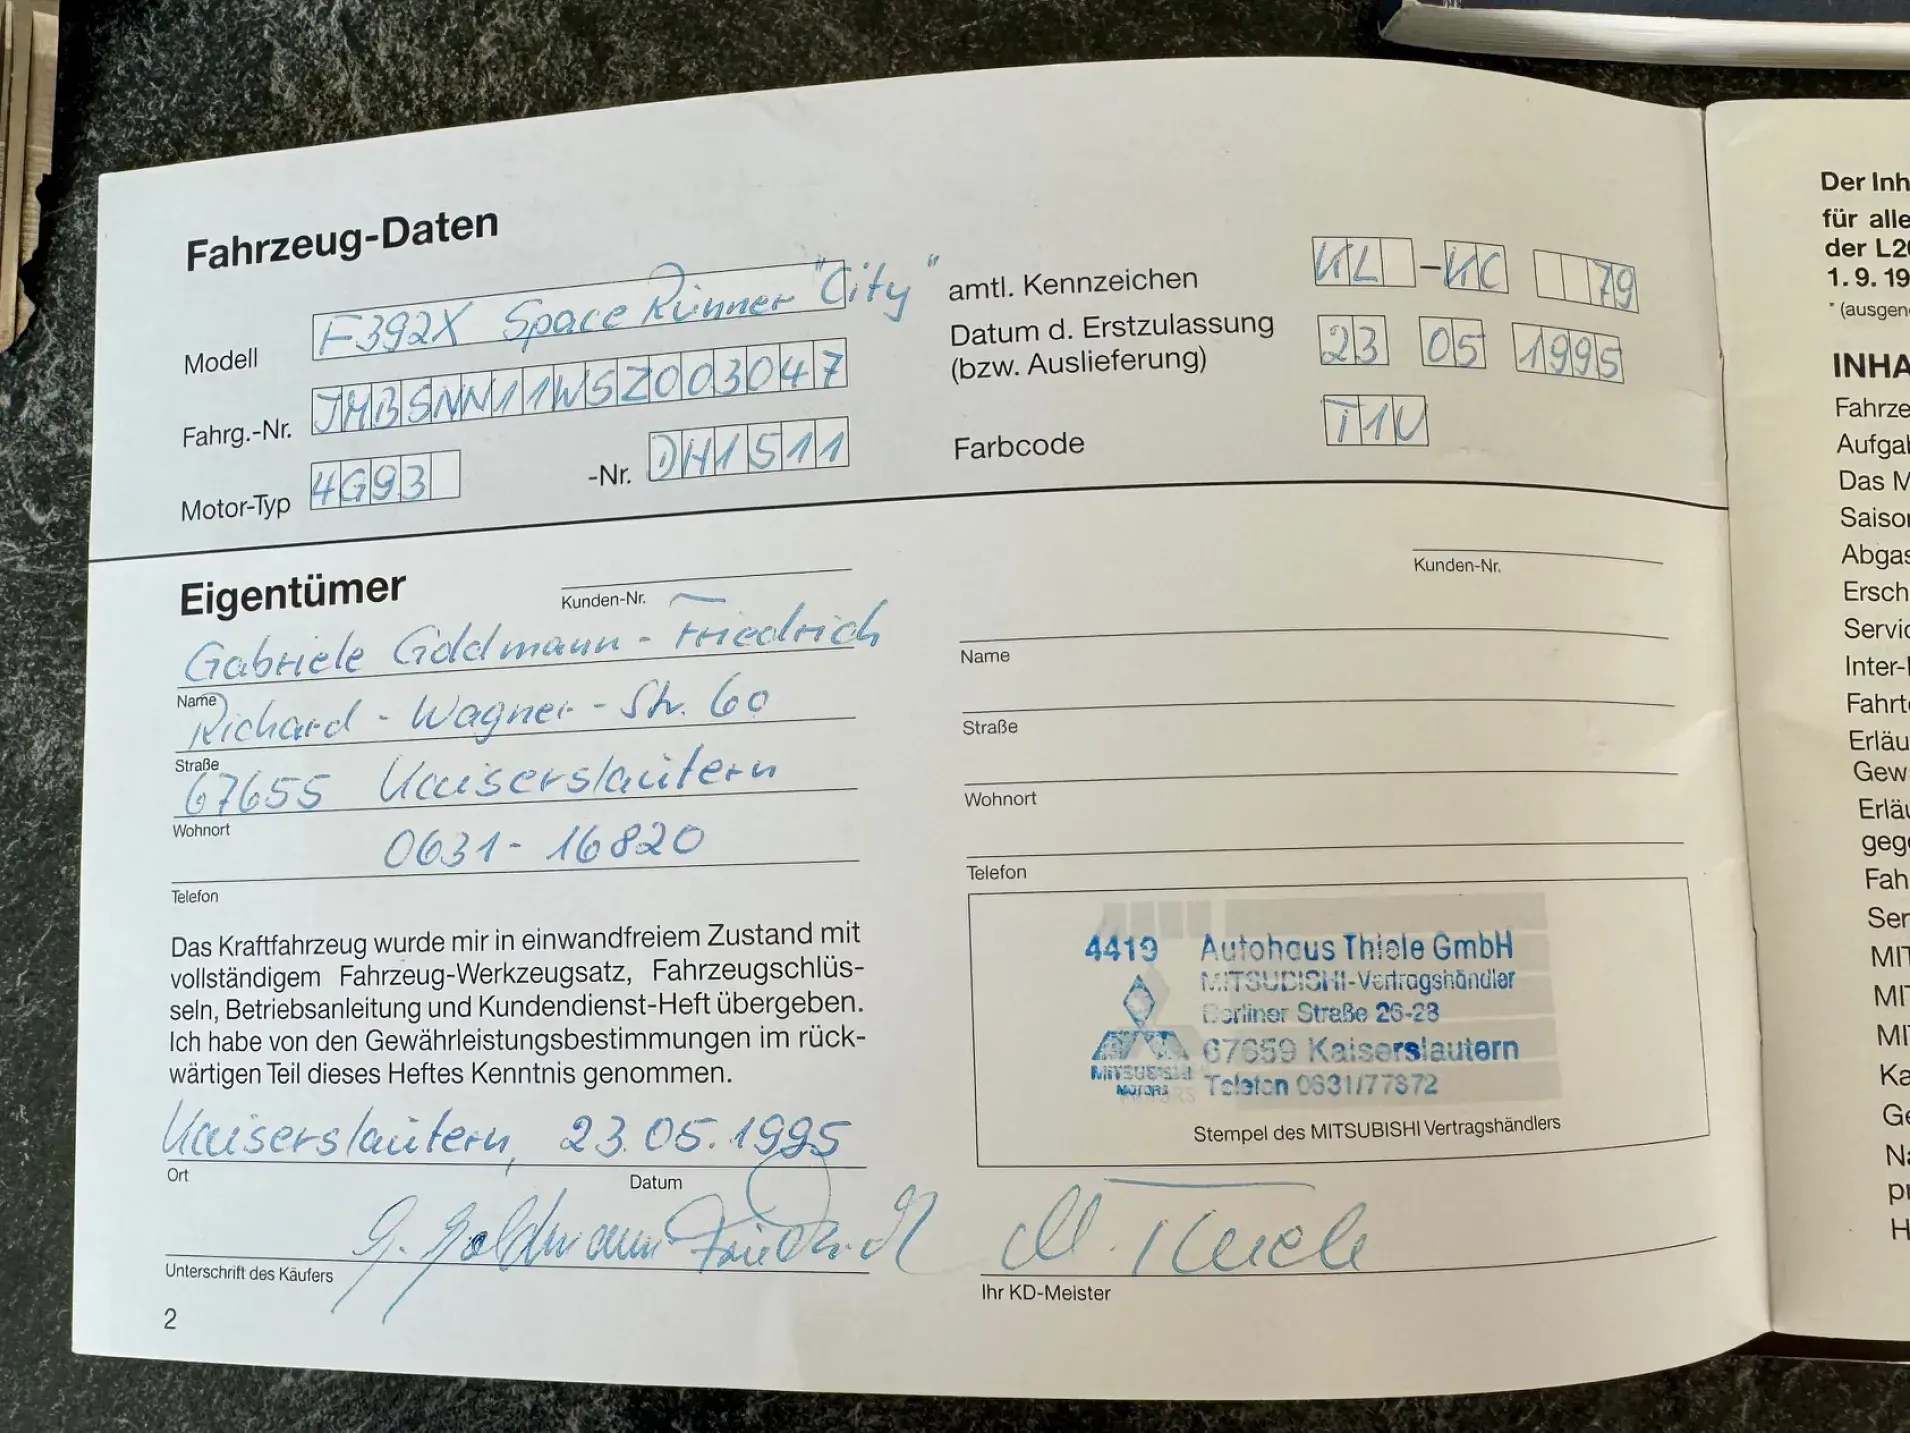 Fahrzeug-Daten
Modell F392X Space Runner "City"
Fahrg.-Nr. JMBSNN11WSZ003047
Motor-Typ 4G93 -Nr. DH1511
amtl. Kennzeichen KL - KC 79
Datum d. Erstzulassung 23 05 1995
(bzw. Auslieferung)
Farbcode T1U
Eigentümer
Kunden-Nr.
Gabriele Goldmann-Friedrich
Name
Richard-Wagner-Str. 60
Straße
67655 Kaiserslautern
Wohnort
0631-16820
Telefon
Das Kraftfahrzeug wurde mir in einwandfreiem Zustand mit
vollständigem Fahrzeug-Werkzeugsatz, Fahrzeugschlüs-
seln, Betriebsanleitung und Kundendienst-Heft übergeben.
Ich habe von den Gewährleistungsbestimmungen im rück-
wärtigen Teil dieses Heftes Kenntnis genommen.
Kaiserslautern, 23.05.1995
Ort Datum
G. Goldmann-Friedrich
Unterschrift des Käufers
2
Kunden-Nr.
Name
Straße
Wohnort
Telefon
4419 Autohaus Thiele GmbH
MITSUBISHI-Vertragshändler
Berliner Straße 26-28
67659 Kaiserslautern
MITSUBISHI
MOTORS
Telefon 0631/77372
Stempel des MITSUBISHI Vertragshändlers
M. Thiele
Ihr KD-Meister
Der Inh
für alle
der L20
1. 9. 19
* (ausgen
INHA
Fahrze
Aufgal
Das M
Saison
Abgas
Ersch
Servic
Inter-
Fahrt
Erläu
Gew
Erläu
geg
Fah
Ser
MIT
MI
MI
Ka
Ge
Na
pr
H